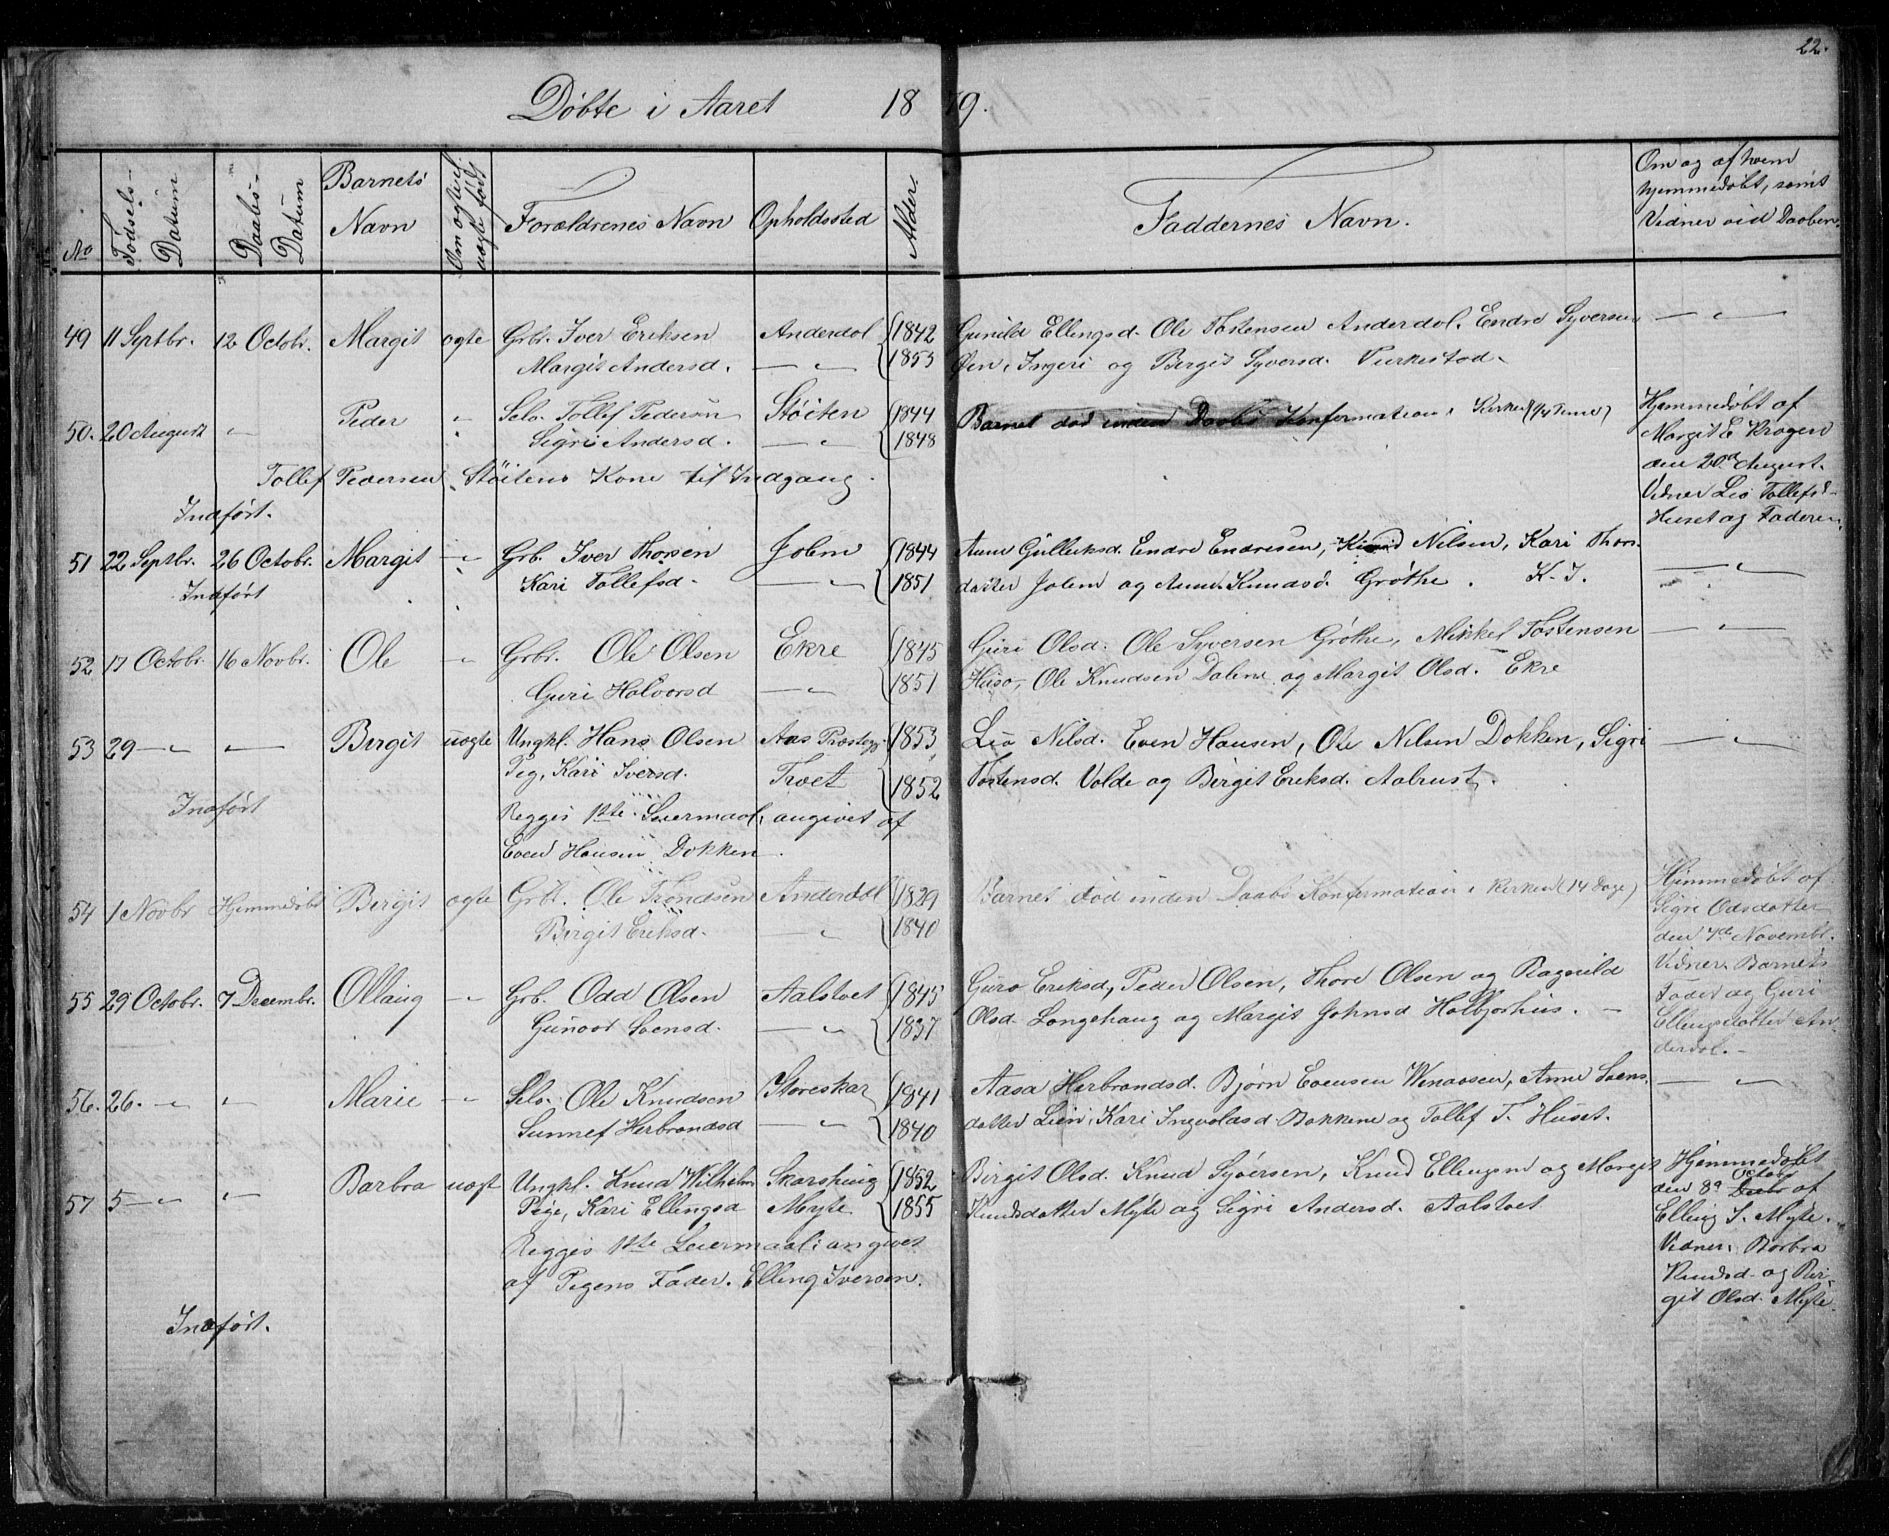 22.
Døbte i Aaret 1879.
No
Fødsels-Datum
Daabs-Datum
Barnets Navn
Om ægte el. uægte født
Forældrenes Navn
Opholdssted
Alder
Faddernes Navn.
Om og af hvem hjemmedøbt, samt Vidner vid Daaben.
49 11 Septbr. 12 Octobr. Margit ægte Grbr. Iver Eriksen Anderdal 1842 Gunild Ellingsd. Ole Tostensen Anderdal. Endre Syversen — " —
Margit Andersd. — " — 1853 Øen, Ingeri og Birgit Syversd.
50. 20 August " Peder " Selv. Tollef Pedersen Støiten 1844 Barnet død inden Daabs Konfirmation i Kirken
Sigri Andersd. — " — 1848
Hjemmedøbt af
Margit E Krogen
den 20d August.
Vidner Liv Tollefsd.
Huset og Faderen
Tollef Pedersen Støitens Kone til Indgang.
Indført.
51 22 Septbr. 26 Octobr. Margit — " Grb. Iver Thorsen Jolm 1844 Anne Gulleiksd. Endre Endresen, Nilsen, Kari Thors-
Indført Kari Tollefsd. — " — 1851 datter Jolm og Anne Knudsd. Grøthe. K. I. — " —
52 17 Octobr. 16 Novbr. Ole — " Grbr. Ole Olsen Ekre 1845 Guri Olsd. Ole Syversen Grøthe, Mikkel Tostensen — " —
Guri Halvorsd — " — 1851 Huso, Ole Knudsen Dalene og Margit Olsd. Ekre
53 29 — " — " — Birgit uægte Ungkl. Hans Olsen Aas Præsteg. 1853 Liv Nilsd. Even Hansen, Ole Nilsen Dokken, Sigri — " —
Pig, Kari Iversd. Troet 1852 Tostensd. Volde og Birgit Eriksd. Aalrust.
Indført Begges 1ste Leiermaal, angivet af
Even Hansen Dokken.
54 1 Novbr Hjemmedøbt Birgit ægte Grbr. Ole Trondsen Anderdal 1829 Barnet død inden Daabs Konfirmation i Kirken (14 Dage)
Birgit Eriksd. — " — 1840
Hjemmedøbt af
Sigri Odsdatter
den 4de Novembr.
Vidner: Barnets
Fader og Guri
Ellingsdatter An-
derdal. —
55 29 Octobr. 7 Decembr. Ollaug — " Grb. Odd Olsen Aalstvet 1845 Guro Eriksd, Peder Olsen, Thore Olsen og Ragnild
Gunvor Svensd. — " — 1837 Olsd. Longehaug og Margit Johnsd Halbjørhus. —
56. 26. — " " Marie — " Selv. Ole Knudsen Storeskar 1841 Aasa Herbrandsd. Bjørn Evensen Wenaasen, Anne Svens- — " —
Sunnef Herbrandsd — " — 1840 datter Lien, Kari Ingvaldsd Bakkene og Tollef T. Huset.
57 5 — " " Barbra uægt Ungkl. Knud Wilhelm Skarsheug 1852 Birgit Olsd. Knud Syversen, Knud Ellingsen og Margit
Pige, Kari Ellingsd Myte 1855 Knudsdatter Myte og Sigri Andersd. Aalstvet
Hjemmedøbt
den 8d Octbr af
Elling I. Myte.
Vidner: Barbra
Knudsd. og Bir-
git Olsd. Myte.
Begges 1ste Leiermaal: angivet
af Pigens Fader. Elling Iversen.
Indført.